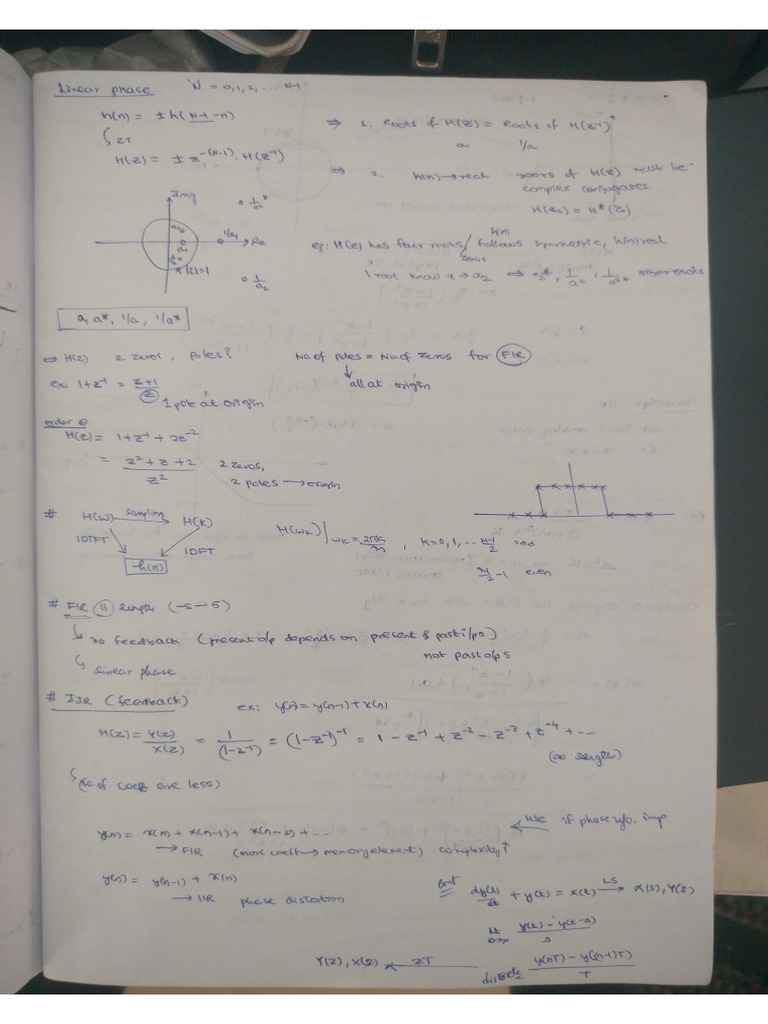 Linear phase 'N' = 0,1,2, ... N-1
h(n) = ± h(N-1-n)
ZT
H(z) = ± z^-(N-1) . H(z^-1)
⇒ 1. Roots of H(z) = Roots of H(z^-1)
a 1/a
⇒ 2. h(n) → real roots of H(z) must be
complex conjugates
H(z0) = H*(z0)
Img
Re
|z|=1
eg: H(z) has four roots/ follows symmetric, h(n) real
zeros h(n)
1 root know → a2 ⇒ a2*, 1/a2, 1/a2* other roots
a, a*, 1/a, 1/a*
⇒ H(z) 2 zeros, Poles? No of Poles = No. of zeros for FIR
all at origin
ex: 1+z^-1 = z+1 / z
1 pole at origin
order
H(z) = 1+z^-1 + 2z^-2
= z^2+z+2 / z^2 2 zeros,
2 poles → origin
# H(ω) sampling → H(k)
IDTFT IDFT
h(n)
H(ωk) | ωk = 2πk/N , k=0,1, .. N-1/2 odd
N/2 -1 even
# FIR 11 length (-5→5)
no feedback (present o/p depends on present & past i/ps)
not past o/ps
linear phase
# IIR (feedback) ex: y(n) = y(n-1) + x(n)
H(z) = Y(z)/X(z) = 1/(1-z^-1) = (1-z^-1)^-1 = 1 - z^-1 + z^-2 - z^-3 + z^-4 + ...
(∞ length)
(no of coeff are less)
y(n) = x(n) + x(n-1) + x(n-2) + ... use if phase info. imp
→ FIR (more coeff → memory element) complexity ↑
y(n) = y(n-1) + x(n)
→ IIR phase distortion
dy(t)/dt + y(t) = x(t) LS → X(s), Y(s)
y(t) - y(t-Δ) / Δ
Y(z), X(z) ← ZT discrete y(nT) - y((n-1)T) / T